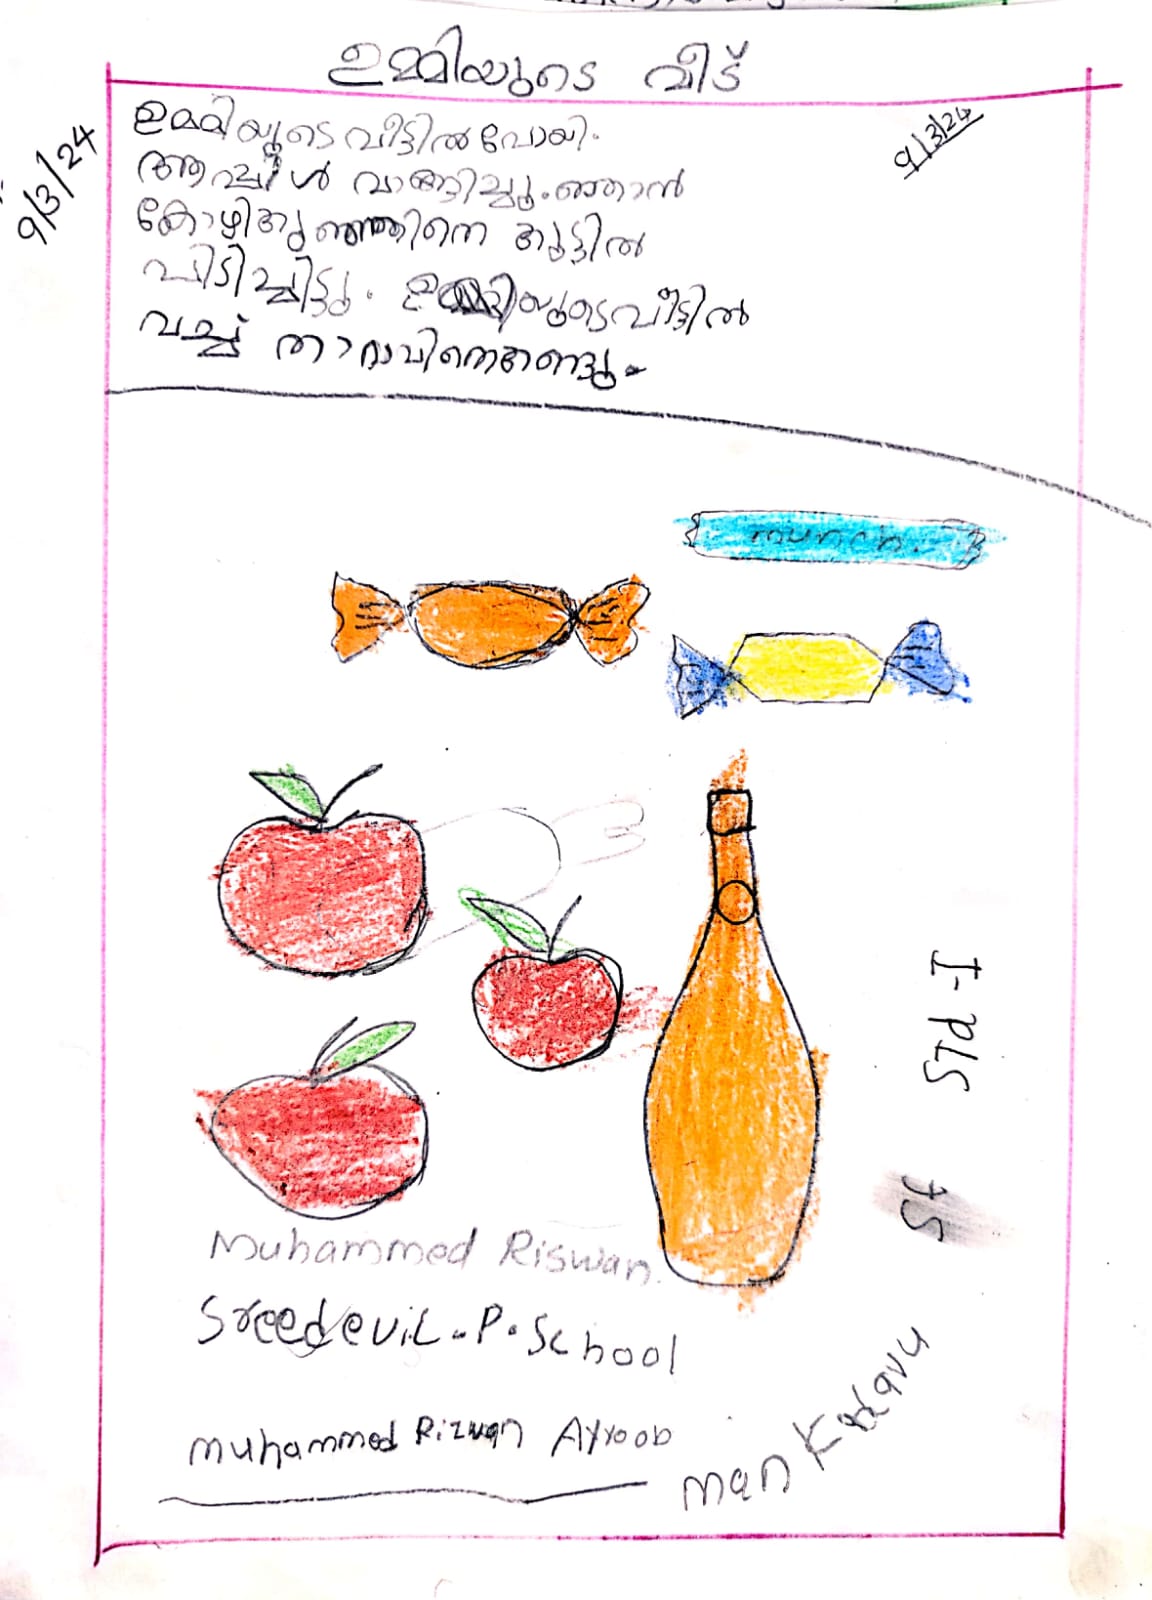 ഉമ്മിയുടെ വീട്
9/3/24
9/3/24
ഉമ്മിയുടെ വീട്ടിൽ പോയി.
ആപ്പിൾ വാങ്ങിച്ചു. ഞാൻ
കോഴികുഞ്ഞിനെ കൂട്ടിൽ
പിടിച്ചിട്ടു. ഉമ്മിയുടെ വീട്ടിൽ
വച്ച് താറാവിനെ കണ്ടു.
munch.
Std - I
St
Muhammed Riswan.
Sreedevi L.P. School
muhammed Rizwan Ayyoob
man Kadavu